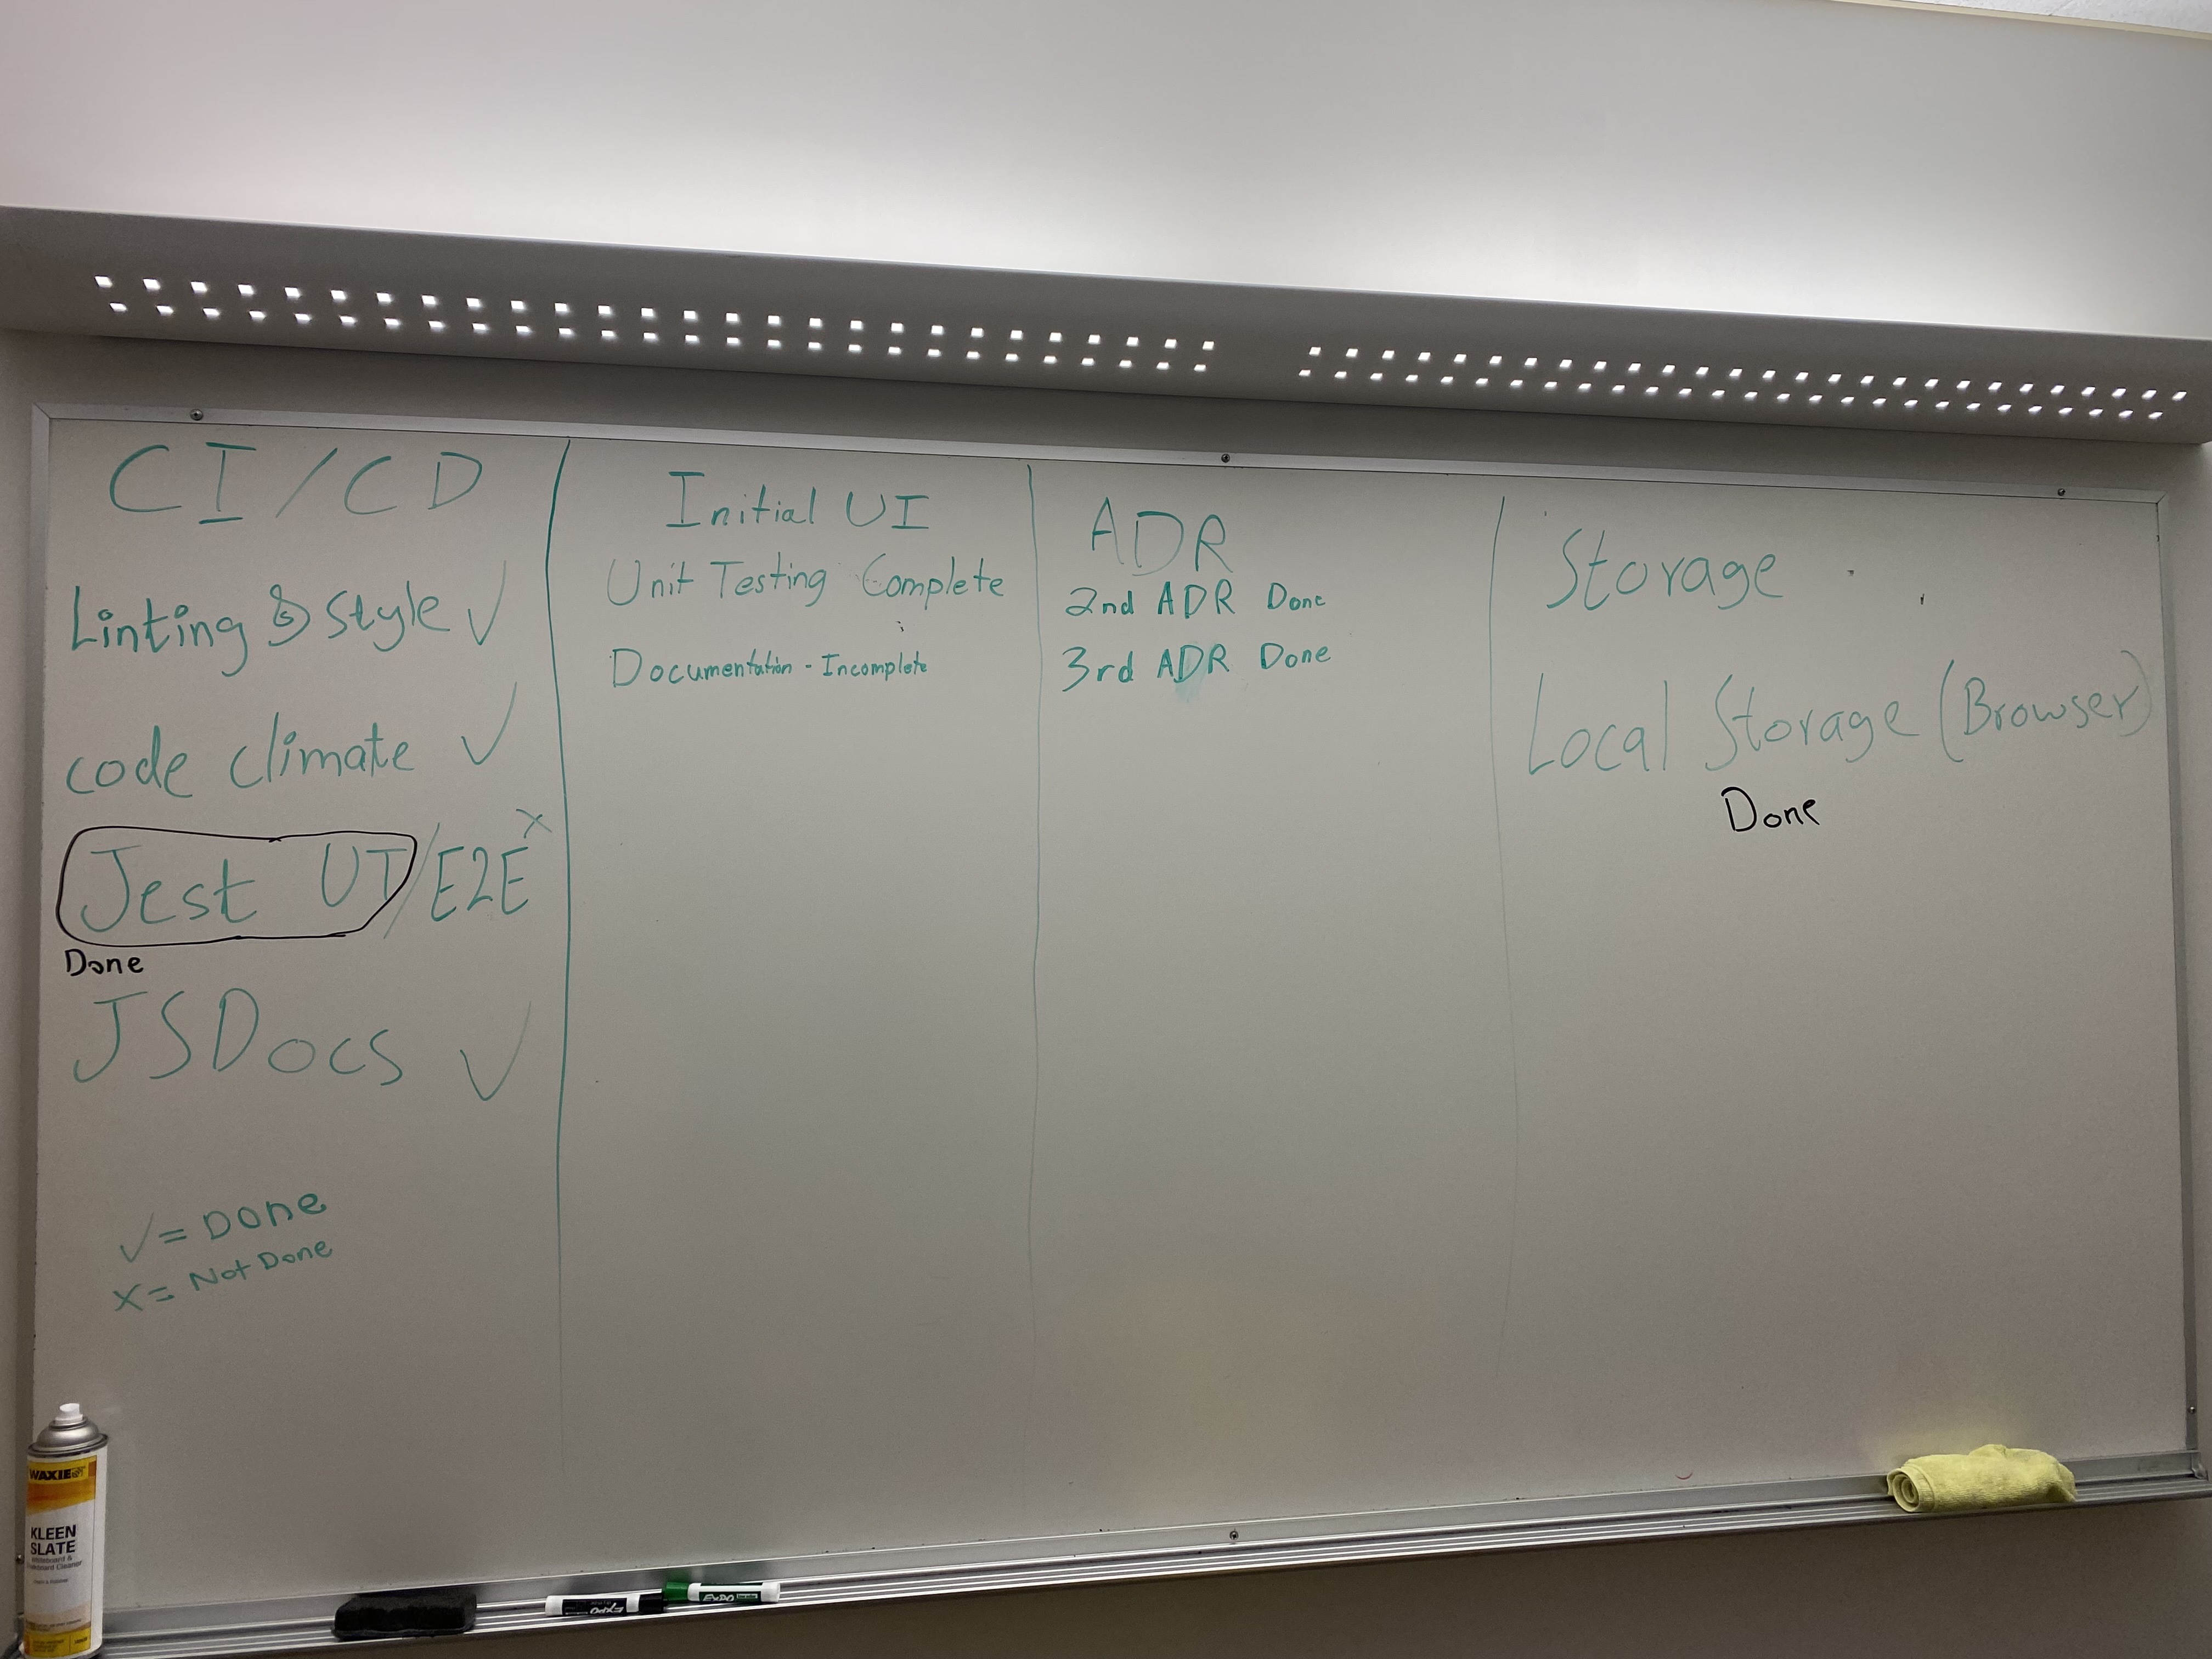 CI/CD
Linting & Style ✓
code climate ✓
Jest UT/E2E x
Done
JSDocs ✓
✓ = Done
x = Not Done
Initial UI
Unit Testing Complete
Documentation - Incomplete
ADR
2nd ADR Done
3rd ADR Done
Storage
Local Storage (Browser)
Done
WAXIE
KLEEN
SLATE
Whiteboard &
Chalkboard Cleaner
EXPO
EXPO